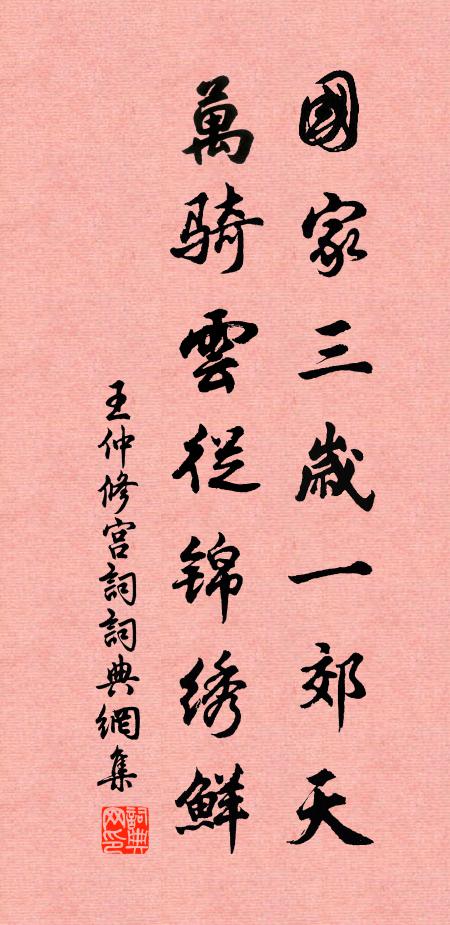 國家三歲一郊天
萬骑雲從锦绣鮮
王仲修宫詞詞典網集
詞典网印